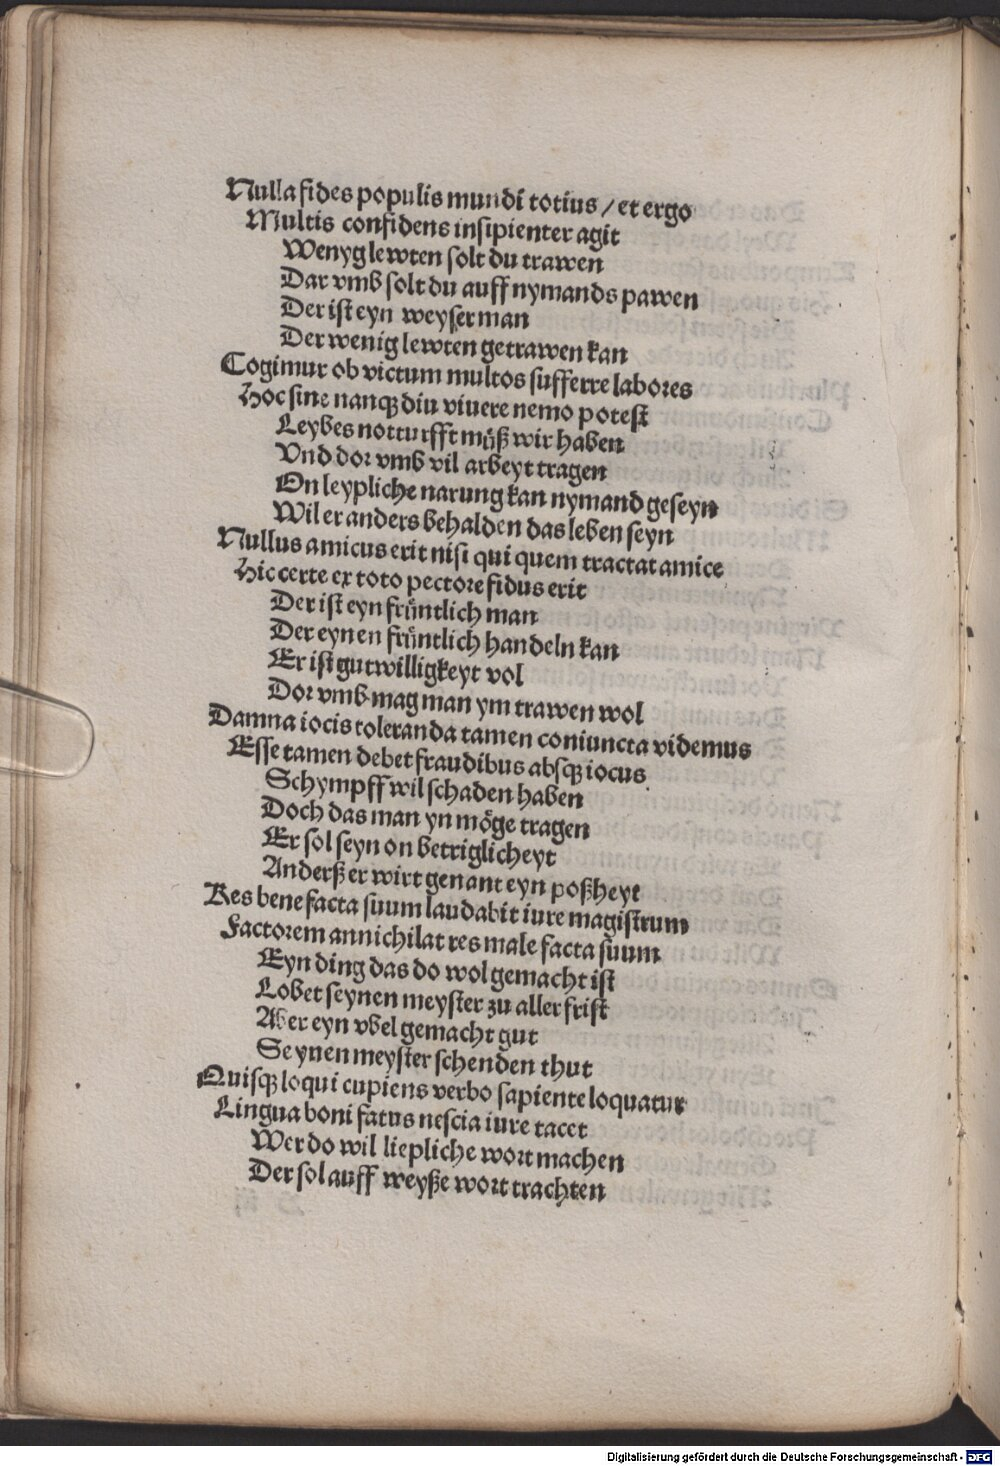 Nulla fides populis mundi totius / et ergo
Multis confidens insipienter agit
Wenyg lewten solt du trawen
Dar vmb solt du auff nymands pawen
Der ist eyn weyser man
Der wenig lewten getrawen kan
Cogimur ob victum multos sufferre labores
Hoc sine nanqꝫ diu viuere nemo potest
Leybes notturfft muͤß wir haben
Vnd dor vmb vil arbeyt tragen
On leypliche narung kan nymand geseyn
Wil er anders behalden das leben seyn
Nullus amicus erit nisi qui quem tractat amice
Hic certe ex toto pectore fidus erit
Der ist eyn fruͤntlich man
Der eynen fruͤntlich handeln kan
Er ist gutwilligkeyt vol
Dor vmb mag man ym trawen wol
Damna iocis toleranda tamen coniuncta videmus
Esse tamen debet fraudibus absqꝫ iocus
Schympff wil schaden haben
Doch das man yn moͤge tragen
Er sol seyn on betriglicheyt
Anderß er wirt genant eyn poßheyt
Res bene facta suum laudabit iure magistrum
Factorem annichilat res male facta suum
Eyn ding das do wol gemacht ist
Lobet seynen meyster zu aller frist
Aber eyn vbel gemacht gut
Seynen meyster schenden thut
Quisqꝫ loqui cupiens verbo sapiente loquatur
Lingua boni fatus nescia iure tacet
Wer do wil liepliche wort machen
Der sol auff weyße wort trachten
Digitalisierung gefördert durch die Deutsche Forschungsgemeinschaft - DFG